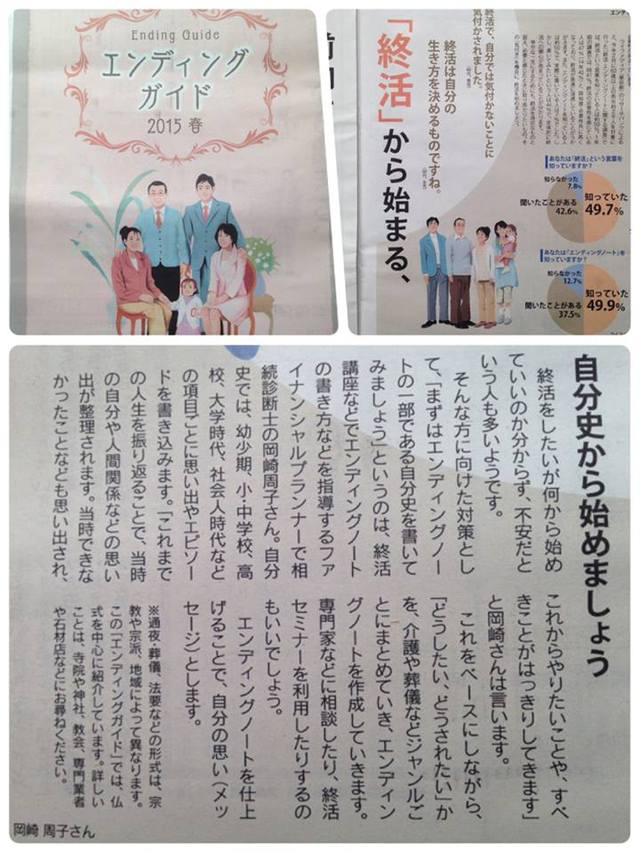 Ending Guide
エンディング
ガイド
2015 春
「終活」から始まる、
終活は自分の
生き方を決めるものですね。
終活で、自分では気付かないことに
気付かされました。
あなたは「終活」という言葉を
知っていますか?
知らなかった
7.8%
聞いたことがある
42.6%
知っていた
49.7%
あなたは「エンディングノート」を
知っていますか?
知らなかった
12.7%
聞いたことがある
37.5%
知っていた
49.9%
自分史から始めましょう
終活をしたいが何から始め
ていいのか分からず、不安だと
いう人も多いようです。
そんな方に向けた対策とし
て、「まずはエンディングノー
トの一部である自分史を書いて
みましょう」というのは、終活
講座などでエンディングノート
の書き方などを指導するファ
イナンシャルプランナーで相
続診断士の岡崎周子さん。自分
史では、幼少期、小・中学校、高
校、大学時代、社会人時代など
の項目ごとに思い出やエピソー
ドを書き込みます。「これまで
の人生を振り返ることで、当時
の自分や人間関係などの思い
出が整理されます。当時できな
かったことなども思い出され、
これからやりたいことや、すべ
きことがはっきりしてきます」
と岡崎さんは言います。
これをベースにしながら、
「どうしたい、どうされたい」か
を、介護や葬儀などジャンルご
とにまとめていき、エンディン
グノートを作成していきます。
専門家などに相談したり、終活
セミナーを利用したりするの
もいいでしょう。
エンディングノートを仕上
げることで、自分の思い(メッ
セージ)とします。
※通夜・葬儀、法要などの形式は、宗
教や宗派、地域によって異なります。
この「エンディングガイド」では、仏
式を中心に紹介しています。詳しい
ことは、寺院や神社、教会、専門業者
や石材店などにお尋ねください。
岡崎 周子さん